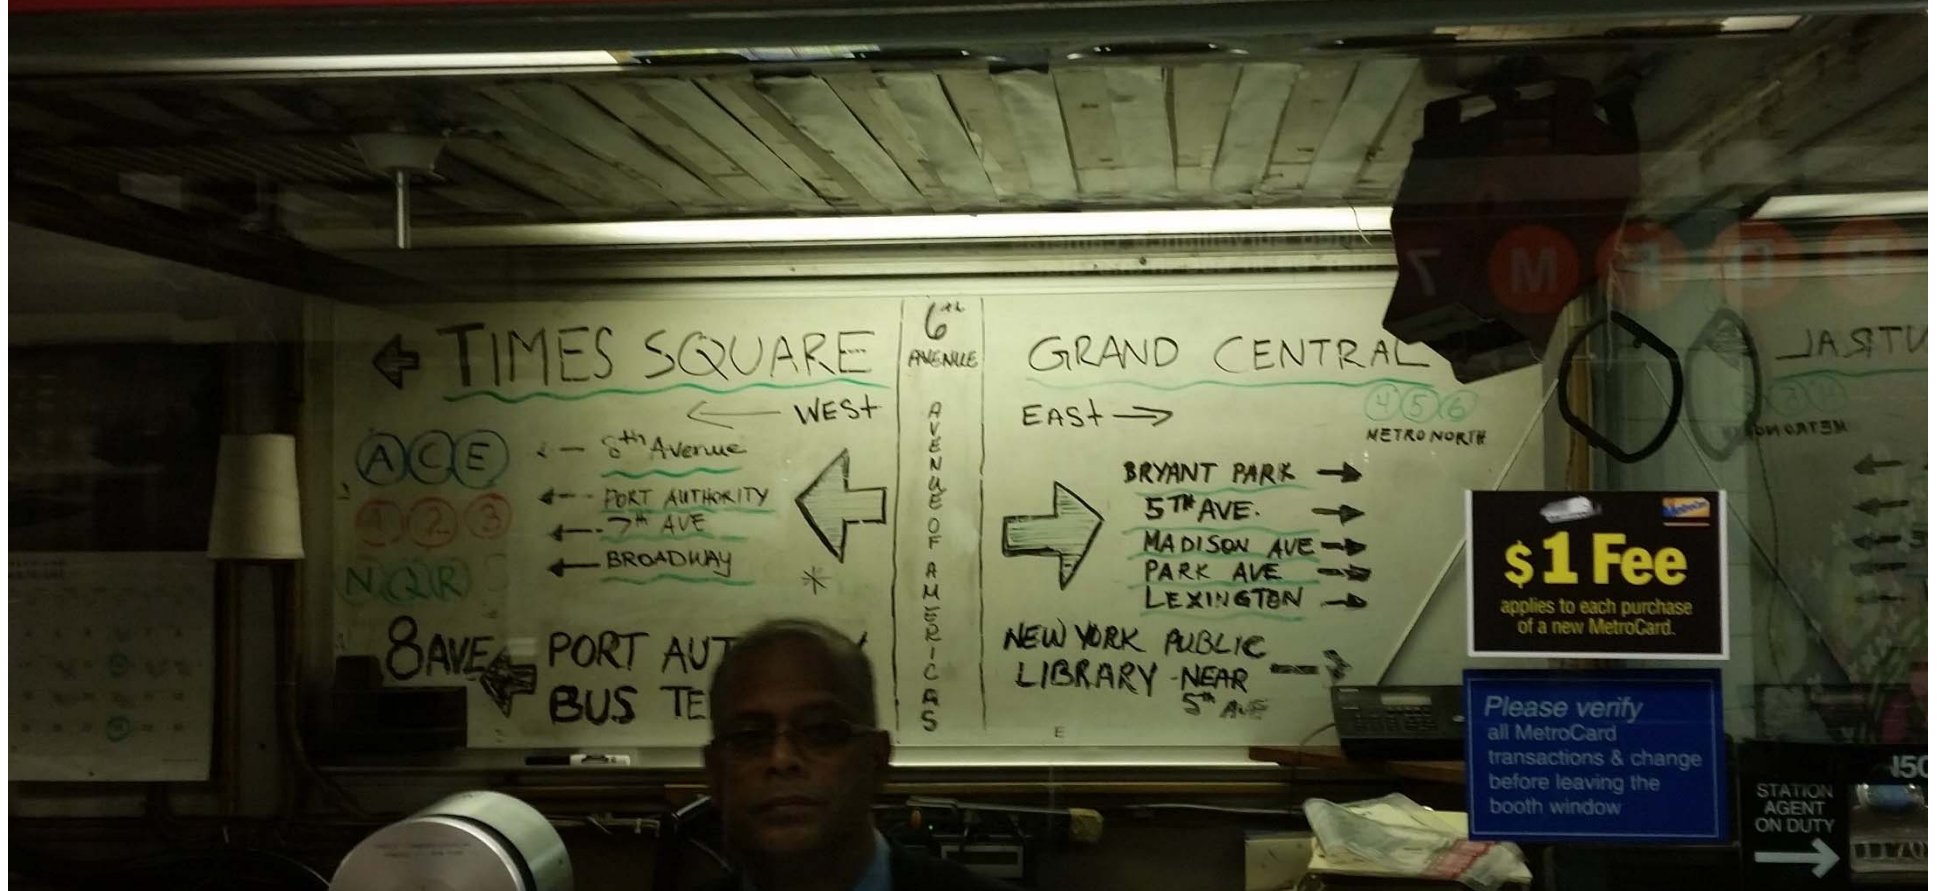 ← TIMES SQUARE
← WEST
A C E ← 8th Avenue
1 2 3 ← PORT AUTHORITY
← 7th AVE
N Q R ← BROADWAY
*
8 AVE ← PORT AUT
BUS TE
6th
AVENUE
AVENUE OF AMERICAS
GRAND CENTRAL
EAST →
4 5 6
METRO NORTH
BRYANT PARK →
5TH AVE. →
MADISON AVE →
PARK AVE →
LEXINGTON →
NEW YORK PUBLIC
LIBRARY - NEAR →
5th AVE
E
7 M F D B
MetroCard
$1 Fee
applies to each purchase
of a new MetroCard.
Please verify
all MetroCard
transactions & change
before leaving the
booth window
STATION
AGENT
ON DUTY
→